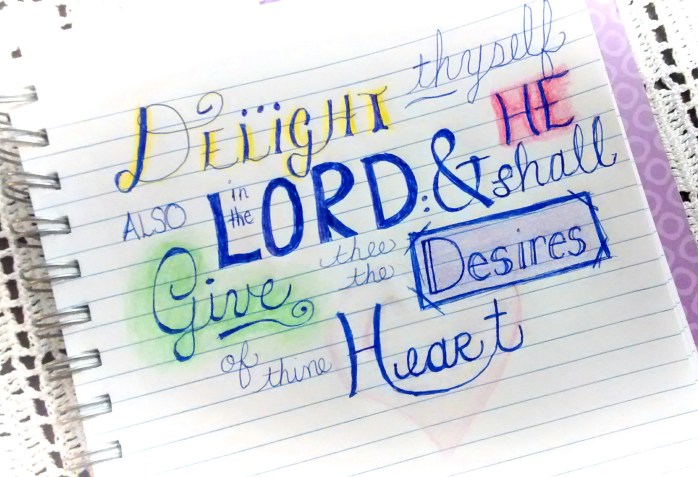 DELIGHT thyself
ALSO in the LORD: & HE shall
Give thee the Desires
of thine Heart